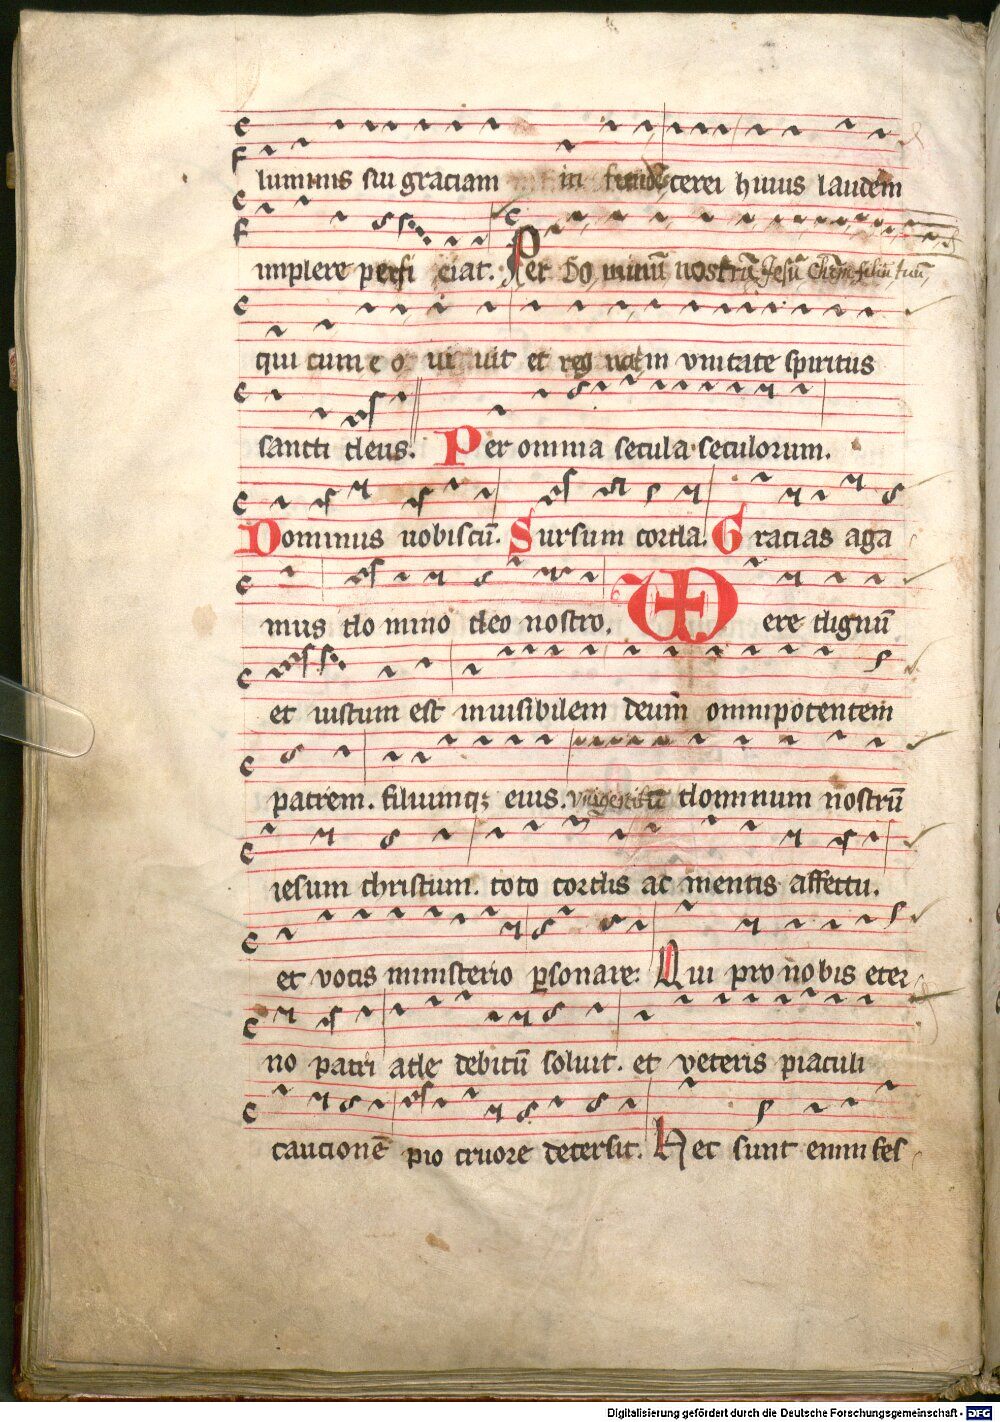 luminis sui graciam in fundēs cerei huius laudem
implere perfi ciat. Per Do minū nostrū Jesū Chrm filiū tuū
qui cum e o ui uit et reg nat in vnitate spiritus
sancti deus. Per omnia secula seculorum.
Dominus uobiscū. Sursum corda. Gracias aga
mus do mino deo nostro. Vere dignū
et iustum est inuisibilem deum omnipotentem
patrem. filiumqz eius. vnigenitū dominum nostrū
iesum christum. toto cordis ac mentis affectu.
et vocis ministerio ꝑsonare: Qui pro nobis eter
no patri ade debitū soluit. et veteris piaculi
caucionē pio cruore detersit. Hec sunt enim fes
Digitalisierung gefördert durch die Deutsche Forschungsgemeinschaft - DFG